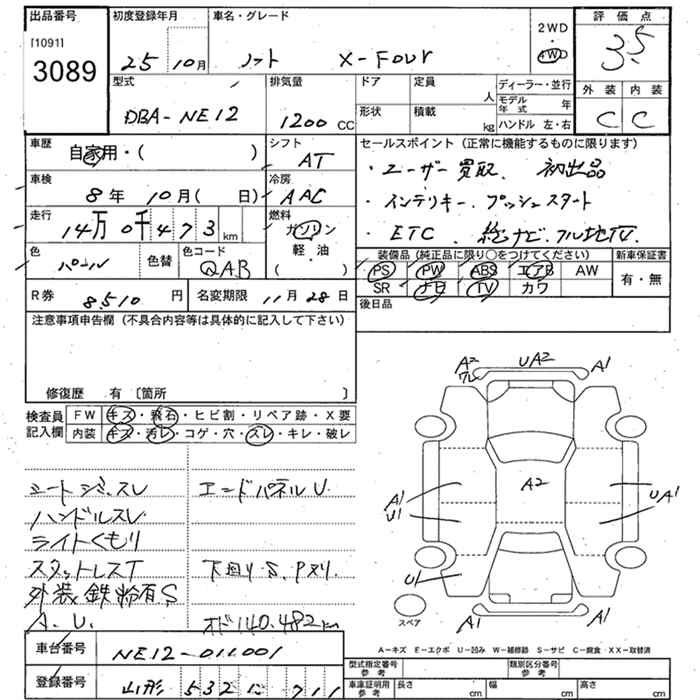 出品番号 初度登録年月 車名・グレード 2WD・4WD 評価点
[1091]
3089 25 10月 ノート X-Four 3.5
型式 排気量 ドア 定員 人 ディーラー・並行 外装 内装
DBA-NE12 1200 CC 形状 積載 kg モデル年式 年 C C
ハンドル 左・右
車歴 自家用・( ) シフト AT セールスポイント(正常に機能するものに限ります)
・ユーザー買取、初出品
車検 8年 10月( 日) 冷房 AAC
・インテリキー、プッシュスタート
走行 14万0千473km 燃料 ガソリン 軽・油 ( )
・ETC、純ナビ、フル地TV
色 パール 色替 色コード QAB
装備品(純正品に限り○をつけてください) 新車保証書
PS PW ABS エアB AW 有・無
SR ナビ TV カワ
R券 8,510円 名変期限 11月28日 後日品
注意事項申告欄(不具合内容等は具体的に記入して下さい)
修復歴 有〔箇所 〕
検査員記入欄 FW キズ・飛石・ヒビ割・リペア跡・X要
内装 キズ・汚レ・コゲ・穴・スレ・キレ・破レ
A2 UA2 A1
A2
A1 U1 UA1
U1
A1 A1
スペア
シートシミ、スレ エンドパネルU.
ハンドルスレ
ライトくもり
スタットレスT 下回りS、Pヌリ.
外装鉄粉有S
A.U. オド140.482km
A-キズ E-エクボ U-凹み W-補修跡 S-サビ C-腐食 XX-取替済
車台番号 NE12-011001
登録番号 山形 532 に 711
型式指定番号 参考 類別区分番号 参考
車庫証明用 参考 長さ cm 幅 cm 高さ cm